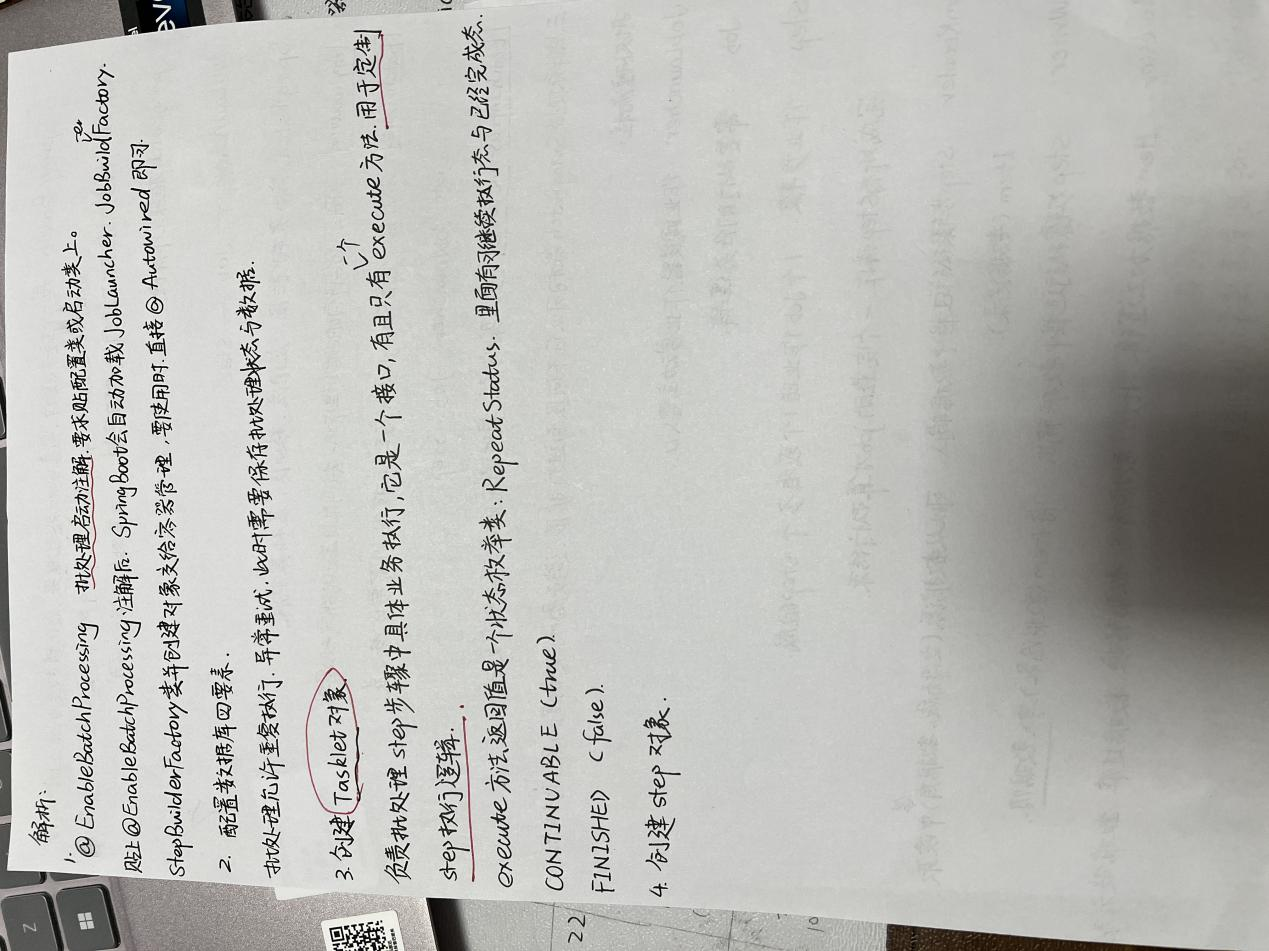 解析:
1. @EnableBatchProcessing 批处理启动注解.要求贴配置类或启动类上。
贴上@EnableBatchProcessing注解后. SpringBoot会自动加载JobLauncher. JobBuilderFactory.
StepBuilderFactory类并创建对象交给容器管理,要使用时.直接@Autowired即可.
2. 配置数据库四要素.
批处理允许重复执行.异常重试.此时需要保存批处理状态与数据.
3. 创建Tasklet对象
负责批处理step步骤中具体业务执行,它是一个接口,有且只有一个execute方法.用于定制
step执行逻辑.
execute方法返回值是一个状态枚举类:RepeatStatus. 里面有可继续执行态与已经完成态.
CONTINUABLE (true).
FINISHED (false).
4. 创建step对象.
22
Z